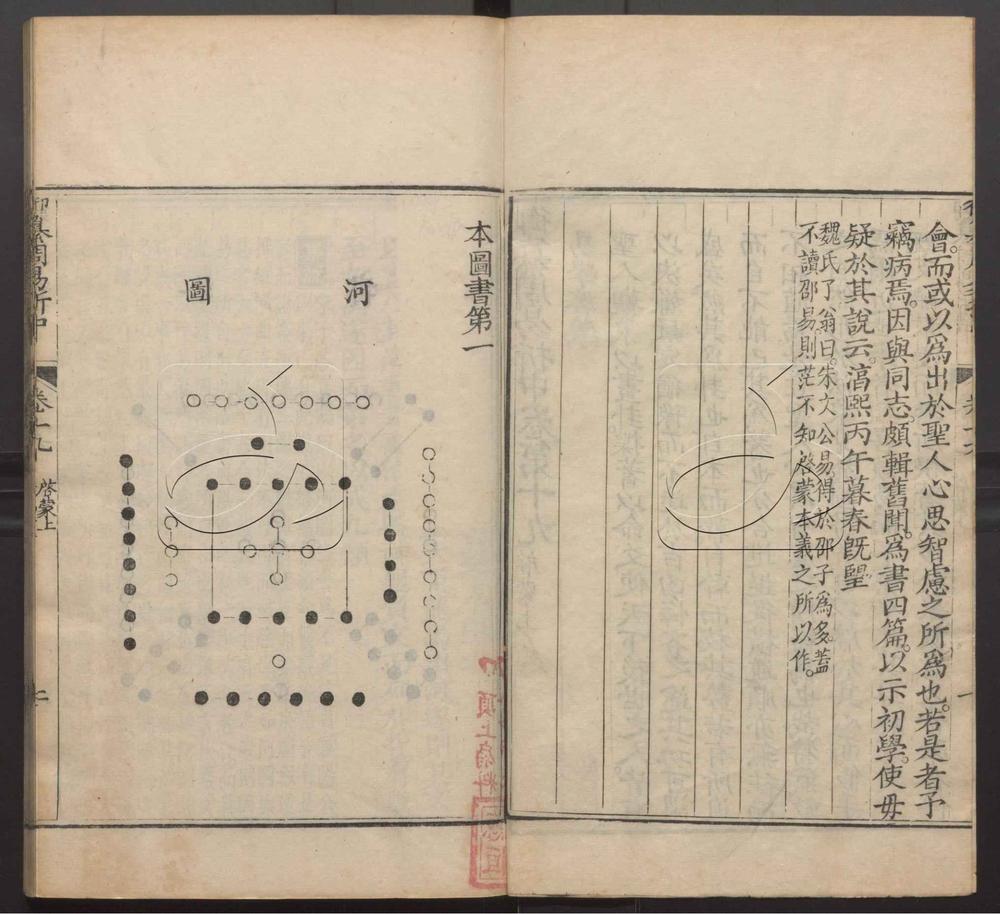 會而或以爲出於聖人心思智慮之所爲也若是者予
竊病焉因與同志頗輯舊聞爲書四篇以示初學使毋
疑於其說云淳熙丙午暮春既望
魏氏了翁曰朱文公易得於邵子爲多蓋
不讀邵易則茫不知啓蒙本義之所以作
本圖書第一
河圖
卷十九 啓蒙上